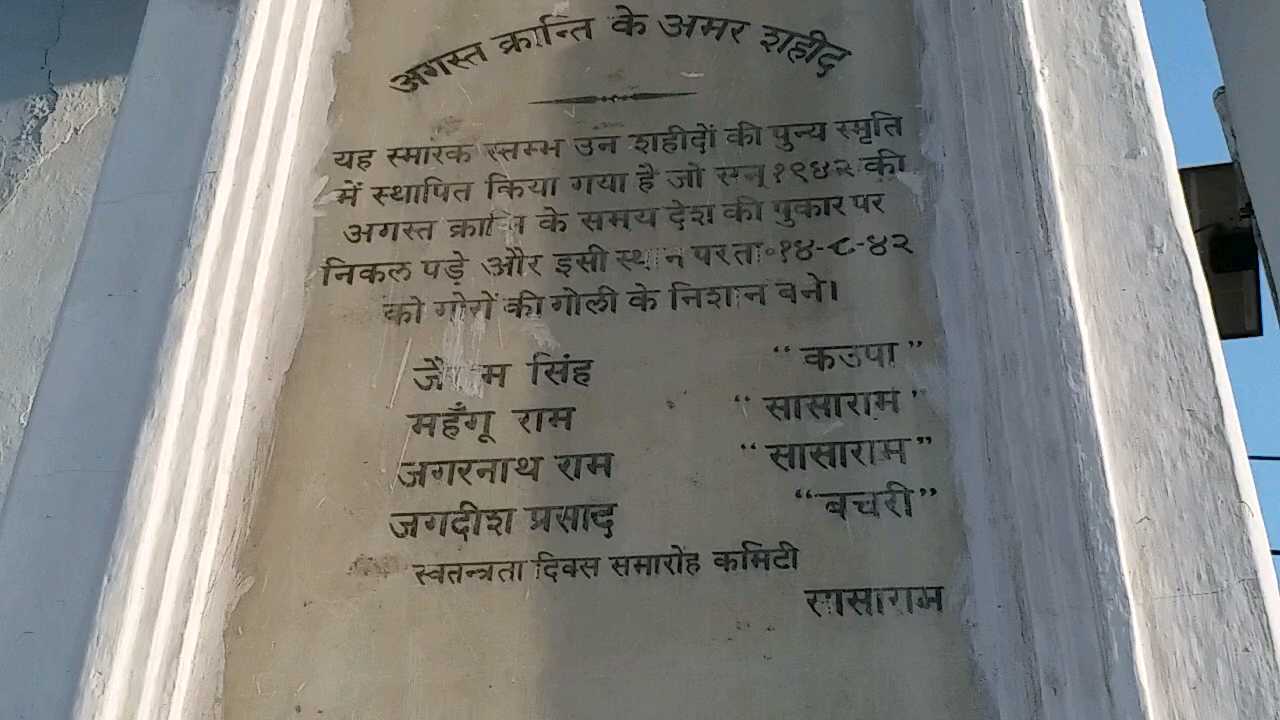 अगस्त क्रान्ति के अमर शहीद
यह स्मारक स्तम्भ उन शहीदों की पुन्य स्मृति
में स्थापित किया गया है जो सन् १९४२ की
अगस्त के समय देश की पुकार पर
निकल पड़े और इसी स्थान पर ता॰ १४-८-४२
को गोरों की गोली के निशान बने।
सिंह "कउपा"
महँगू राम "सासाराम"
जगरनाथ राम "सासाराम"
जगदीश प्रसाद "बचरी"
स्वतन्त्रता दिवस समारोह कमिटी
सासाराम